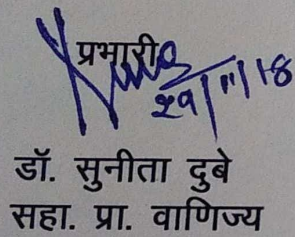 प्रभारी
29/11/18
डॉ. सुनीता दुबे
सहा. प्रा. वाणिज्य